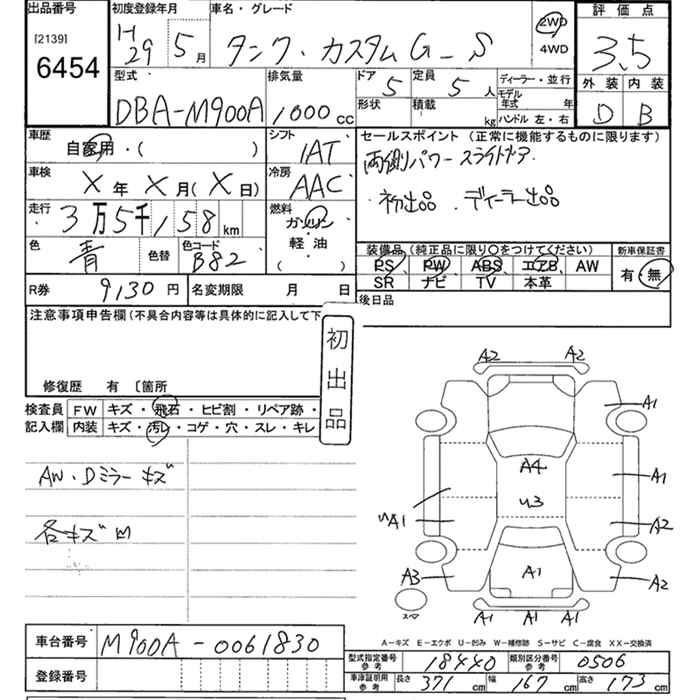 出品番号 初度登録年月 車名・グレード 評価点
[2139] H29年5月 タンク・カスタムG-S 2WD 3.5
6454 4WD
型式 排気量 ドア 定員 ディーラー・並行 外装 内装
DBA-M900A 1000cc 5 5人 モデル年式 年 D B
形状 積載 kg ハンドル 左・右
車歴 シフト セールスポイント (正常に機能するものに限ります)
自家用・( ) IAT 両側パワースライドドア
車検 冷房 初出品 . ディーラー出品
X年X月(X日) AAC
走行 燃料
3万5千158km ガソリン
色 色替 色コード 軽油 装備品(純正品に限り○をつけてください) 新車保証書
青 B82 ( ) PS PW ABS エアB AW 有・無
SR ナビ TV 本革
R券 9130円 名変期限 月 日 後日品
注意事項申告欄(不具合内容等は具体的に記入して下
初出品
修復歴 有 〔箇所
検査員 FW キズ・飛石・ヒビ割・リペア跡・
記入欄 内装 キズ・汚レ・コゲ・穴・スレ・キレ
AW・Dミラーキズ
各キズM
A2 A2
A1
A4 A1
U3
A1 A2
A3 A1 A2
スペア
A1 A1 A1
A-キズ E-エクボ U-凹み W-補修跡 S-サビ C-腐食 XX-交換済
車台番号 M900A-0061830
型式指定番号 参考 18440 類別区分番号 参考 0506
登録番号
車庫証明用 参考 長さ 371cm 幅 167cm 高さ 173cm